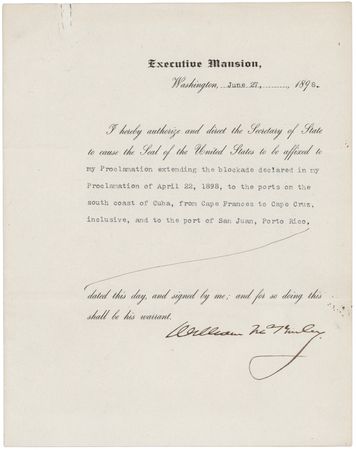 Executive Mansion,
Washington, June 27, 1898.
I hereby authorize and direct the Secretary of State
to cause the Seal of the United States to be affixed to
my Proclamation extending the blockade declared in my
Proclamation of April 22, 1898, to the ports on the
south coast of Cuba, from Cape Frances to Cape Cruz,
inclusive, and to the port of San Juan, Porto Rico,
dated this day, and signed by me; and for so doing this
shall be his warrant.
William McKinley